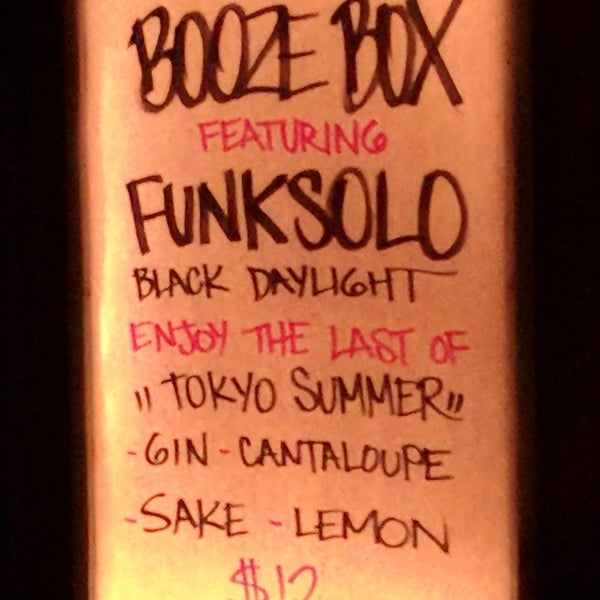 BOOZE BOX
FEATURING
FUNKSOLO
BLACK DAYLIGHT
ENJOY THE LAST OF
"TOKYO SUMMER"
-GIN-CANTALOUPE
-SAKE-LEMON
$12